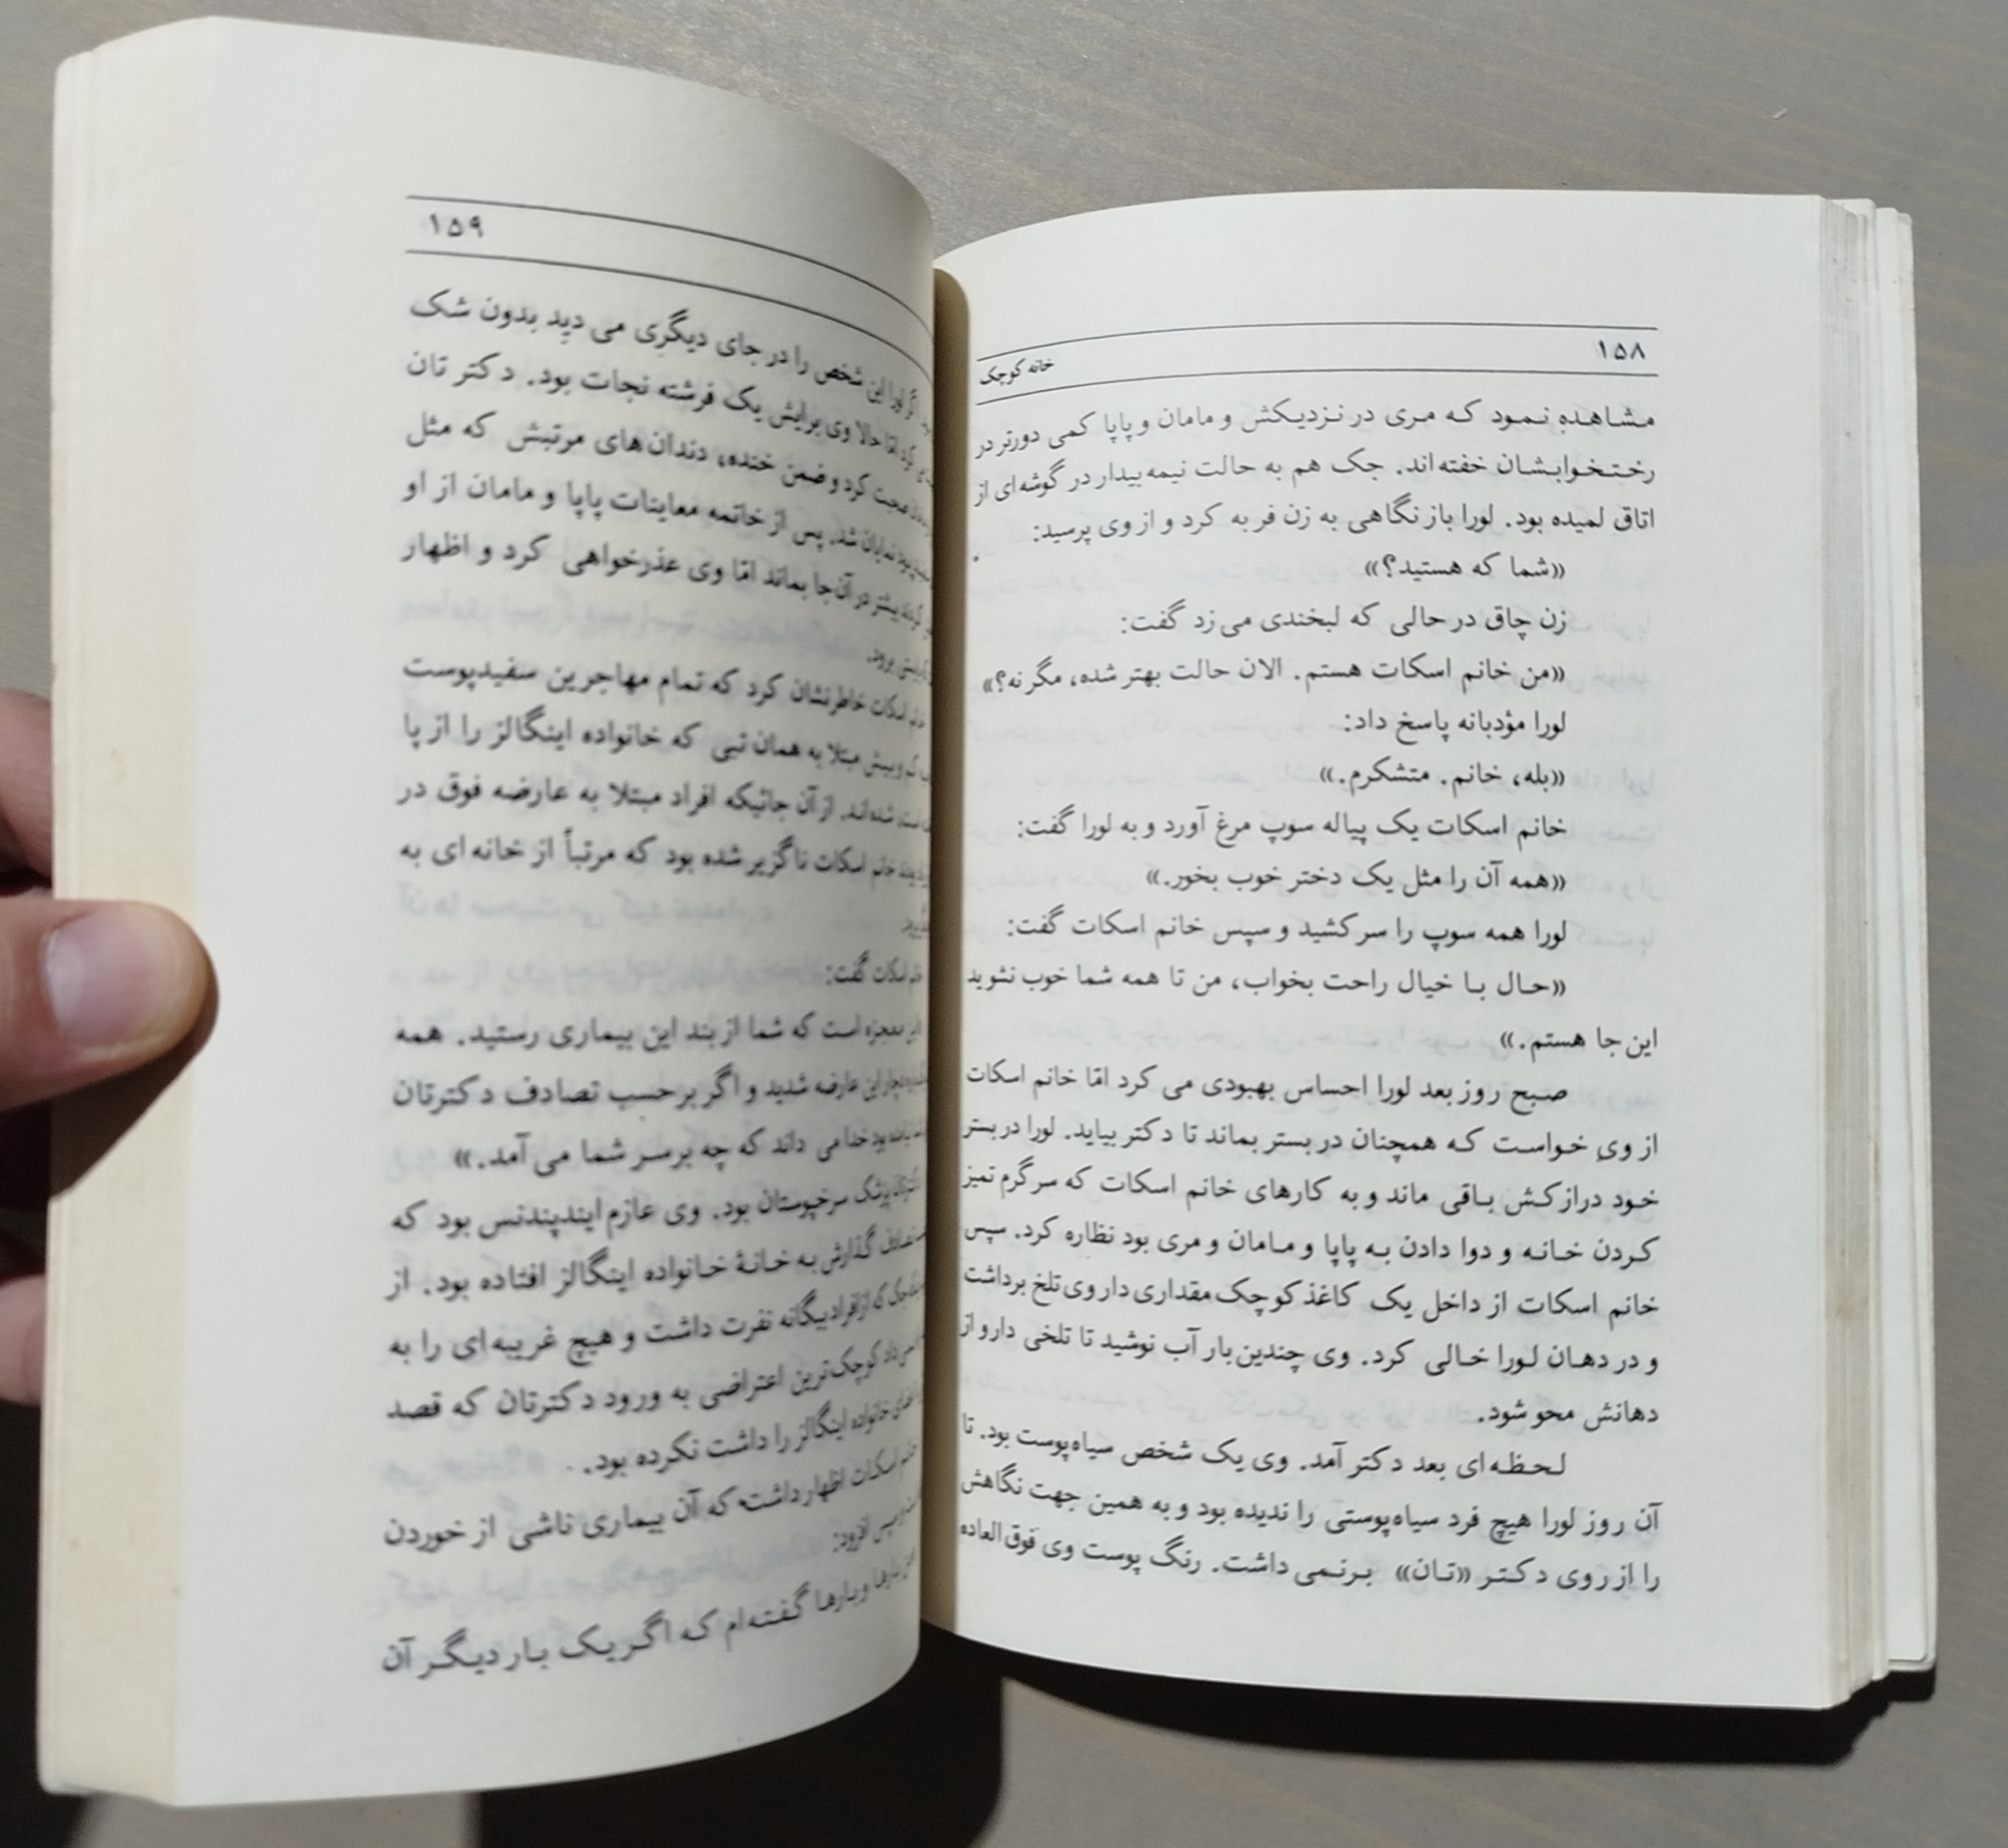 ۱۵۸
خانه کوچک
مشاهده نمود که مری در نزدیکش و مامان و پاپا کمی دورتر در
رختخوابشان خفته‌اند. جک هم به حالت نیمه بیدار در گوشه‌ای از
اتاق لمیده بود. لورا باز نگاهی به زن فربه کرد و از وی پرسید:
«شما که هستید؟»
زن چاق در حالی که لبخندی می‌زد گفت:
«من خانم اسکات هستم. الان حالت بهتر شده، مگر نه؟»
لورا مؤدبانه پاسخ داد:
«بله، خانم. متشکرم.»
خانم اسکات یک پیاله سوپ مرغ آورد و به لورا گفت:
«همه آن را مثل یک دختر خوب بخور.»
لورا همه سوپ را سر کشید و سپس خانم اسکات گفت:
«حال با خیال راحت بخواب، من تا همه شما خوب نشوید
این جا هستم.»
صبح روز بعد لورا احساس بهبودی می کرد امّا خانم اسکات
از وی خواست که همچنان در بستر بماند تا دکتر بیاید. لورا در بستر
خود درازکش باقی ماند و به کارهای خانم اسکات که سرگرم تمیز
کردن خانه و دوا دادن به پاپا و مامان و مری بود نظاره کرد. سپس
خانم اسکات از داخل یک کاغذ کوچک مقداری داروی تلخ برداشت
و در دهان لورا خالی کرد. وی چندین بار آب نوشید تا تلخی دارو از
دهانش محو شود.
لحظه‌ای بعد دکتر آمد. وی یک شخص سیاه‌پوست بود. تا
آن روز لورا هیچ فرد سیاه‌پوستی را ندیده بود و به همین جهت نگاهش
را از روی دکتر «تان» برنمی داشت. رنگ پوست وی فوق العاده
۱۵۹
اگر لورا این شخص را در جای دیگری می دید بدون شک
کرد امّا حالا وی برایش یک فرشته نجات بود. دکتر تان
صحبت کرد و ضمن خنده، دندان های مرتبش که مثل
بود نمایان شد. پس از خاتمه معاینات پاپا و مامان از او
کردند بیشتر در آن جا بماند امّا وی عذرخواهی کرد و اظهار
برود.
خانم اسکات خاطرنشان کرد که تمام مهاجرین سفیدپوست
کم و بیش مبتلا به همان تبی که خانواده اینگالز را از پا
شده‌اند. از آن جائیکه افراد مبتلا به عارضه فوق در
خانم اسکات ناگزیر شده بود که مرتباً از خانه ای به
خانم اسکات گفت:
معجزه است که شما از بند این بیماری رستید. همه
دچار این عارضه شدید و اگر برحسب تصادف دکترتان
نیامده بود خدا می داند که چه برسر شما می آمد.»
پزشک سرخپوستان بود. وی عازم ایندپندنس بود که
تصادف گذارش به خانهٔ خانواده اینگالز افتاده بود. از
جک که از افراد بیگانه نفرت داشت و هیچ غریبه‌ای را به
کوچک‌ترین اعتراضی به ورود دکترتان که قصد
خانواده اینگالز را داشت نکرده بود.
خانم اسکات اظهار داشت که آن بیماری ناشی از خوردن
و سپس افزود:
بارها و بارها گفته‌ام که اگر یک بار دیگر آن